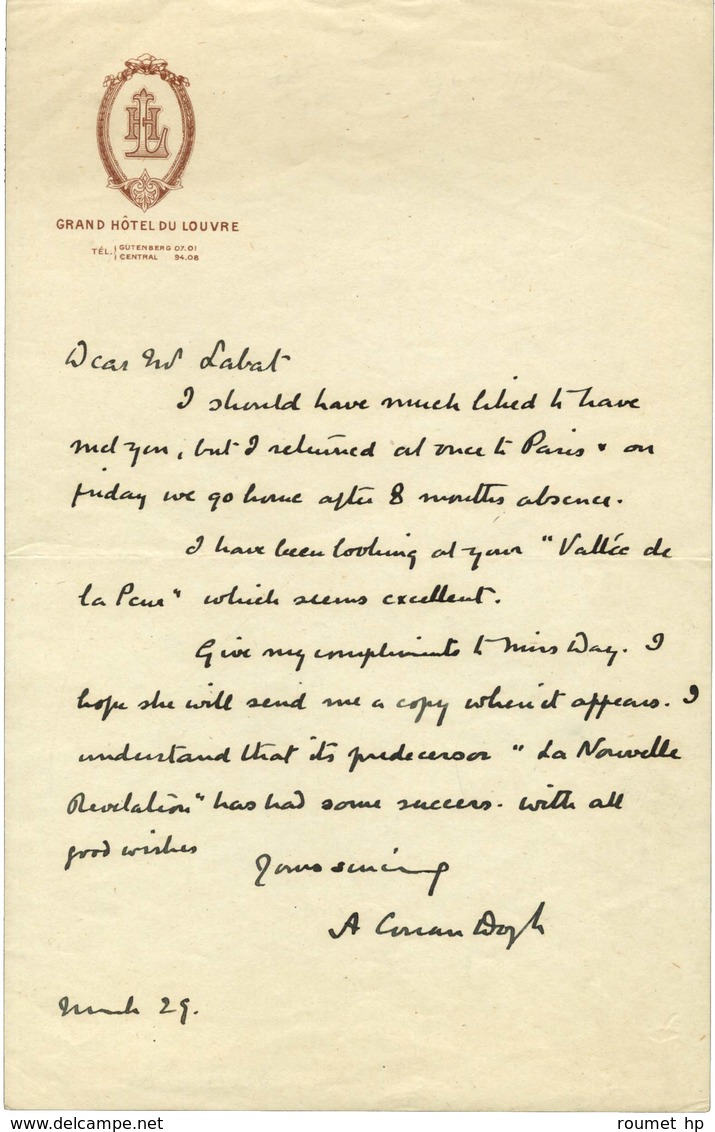 HL
GRAND HÔTEL DU LOUVRE
TÉL. GUTENBERG 07.01
CENTRAL 94.08
Dear Mr Labat
I should have much liked to have
met you, but I returned at once to Paris & on
friday we go home after 8 months absence.
I have been looking at your "Vallée de
la Peur" which seems excellent.
Give my compliments to Miss Day. I
hope she will send me a copy when it appears. I
understand that its predecessor "La Nouvelle
Revelation" has had some success. With all
good wishes
Yours sincerely
A Conan Doyle
March 29.
delcampe.net
roumet hp